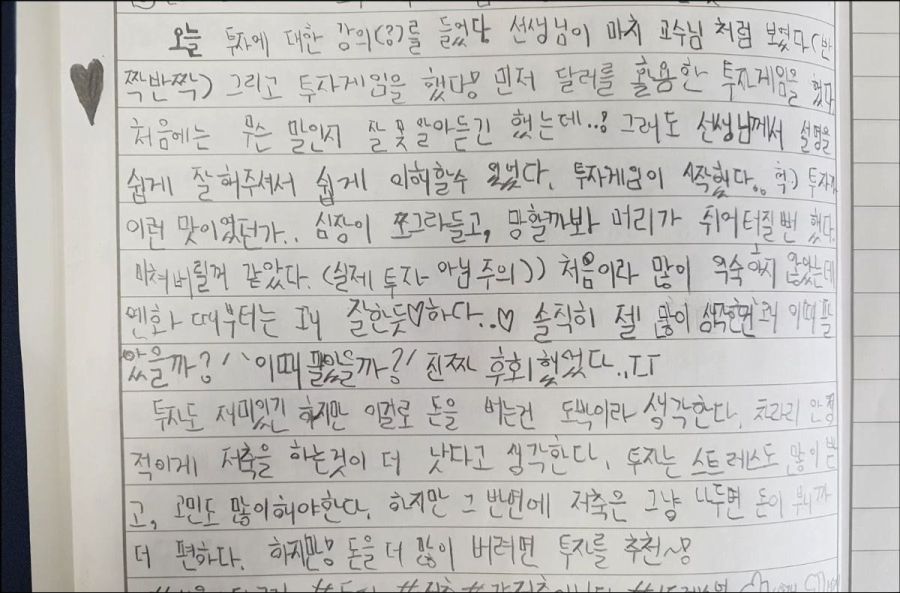 오늘 투자에 대한 강의(?)를 들었다 선생님이 마치 교수님 처럼 보였다(반
짝반짝) 그리고 투자게임을 했다! 먼저 달러를 활용한 투자게임을 했다
처음에는 무슨 말인지 잘 못 알아듣긴 했는데..? 그래도 선생님께서 설명을
쉽게 잘 해주셔서 쉽게 이해할수 있었다. 투자게임이 시작했다.. 헉) 투자가
이런 맛이였던가.. 심장이 쪼그라들고, 망할까봐 머리가 쥐어터질뻔 했다.
미쳐버릴꺼 같았다. (실제 투자 아님 주의)) 처음이라 많이 익숙하지 않았는데
엔화 때부터는 꽤 잘한듯♡하다..♡ 솔직히 젤 많이 생각한면 이때팔
았을까?' '이때 팔았을까?' 진짜 후회했었다..ㅠ
투자도 재미있긴 하지만 이걸로 돈을 버는건 도박이라 생각한다. 차라리 안정
적이게 저축을 하는것이 더 낫다고 생각한다. 투자는 스트레스도 많이 받
고, 고민도 많이해야한다. 하지만 그 반면에 저축은 그냥 나두면 돈이 부니까
더 편하다. 하지만! 돈을 더 많이 버려면 투자를 추천~!